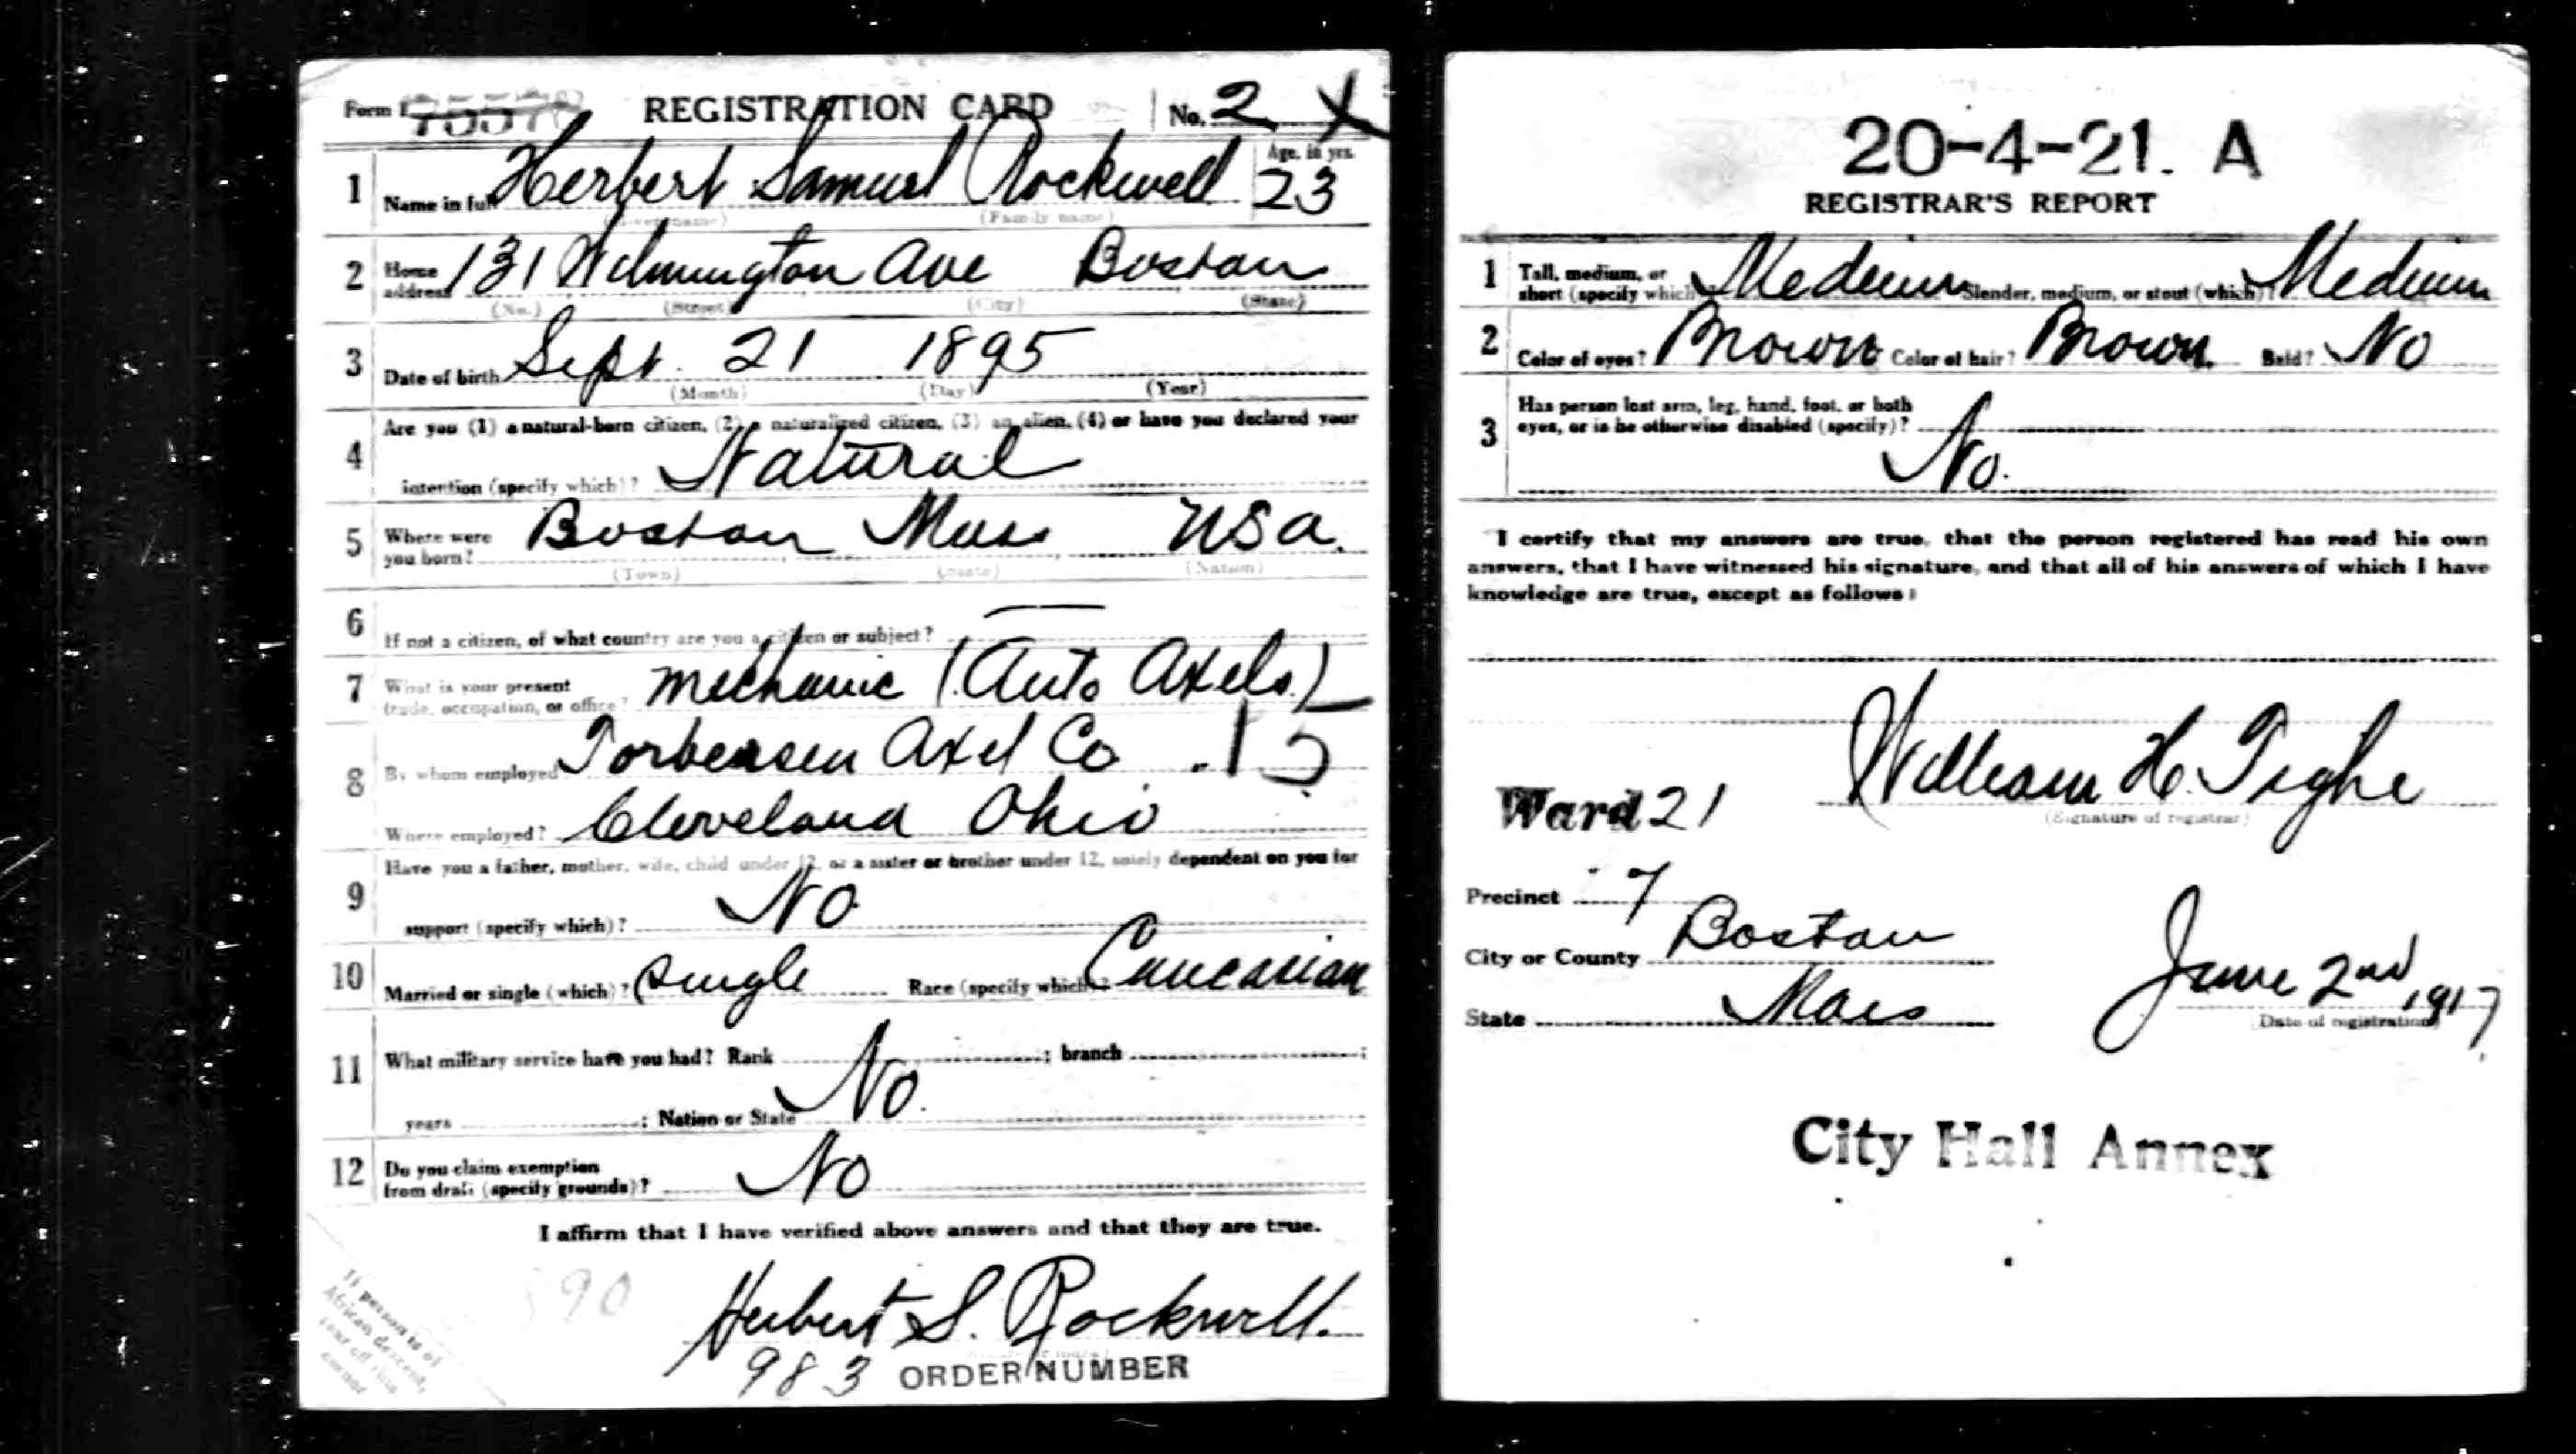 Form 1 REGISTRATION CARD No. 2 X
1 Name in full Herbert Samuel Rockwell Age, in yrs. 23
(Given name) (Family name)
2 Home address 131 Wilmington Ave Boston
(No.) (Street) (City) (State)
3 Date of birth Sept. 21 1895
(Month) (Day) (Year)
4 Are you (1) a natural-born citizen, (2) a naturalized citizen, (3) an alien, (4) or have you declared your
intention (specify which)? Natural
5 Where were you born? Boston Mass USA.
(Town) (State) (Nation)
6 If not a citizen, of what country are you a citizen or subject? —
7 What is your present trade, occupation, or office? Mechanic (Auto Axels)
8 By whom employed Torbensen Axel Co 15
Where employed? Cleveland Ohio
9 Have you a father, mother, wife, child under 12, or a sister or brother under 12, solely dependent on you for
support (specify which)? No
10 Married or single (which)? Single Race (specify which)? Caucasian
11 What military service have you had? Rank ; branch ;
years ; Nation or State No.
12 Do you claim exemption from draft (specify grounds)? No
I affirm that I have verified above answers and that they are true.
90
Herbert S. Rockwell.
983 ORDER NUMBER
If person is of
African descent,
tear off this
corner
20-4-21. A
REGISTRAR'S REPORT
1 Tall, medium, or short (specify which)? Medium Slender, medium, or stout (which)? Medium
2 Color of eyes? Brown Color of hair? Brown Bald? No
3 Has person lost arm, leg, hand, foot, or both
eyes, or is he otherwise disabled (specify)?
No.
I certify that my answers are true, that the person registered has read his own
answers, that I have witnessed his signature, and that all of his answers of which I have
knowledge are true, except as follows:
William H. Tighe
(Signature of registrar)
Ward 21
Precinct 7
City or County Boston
State Mass
June 2nd, 1917
Date of registration
City Hall Annex